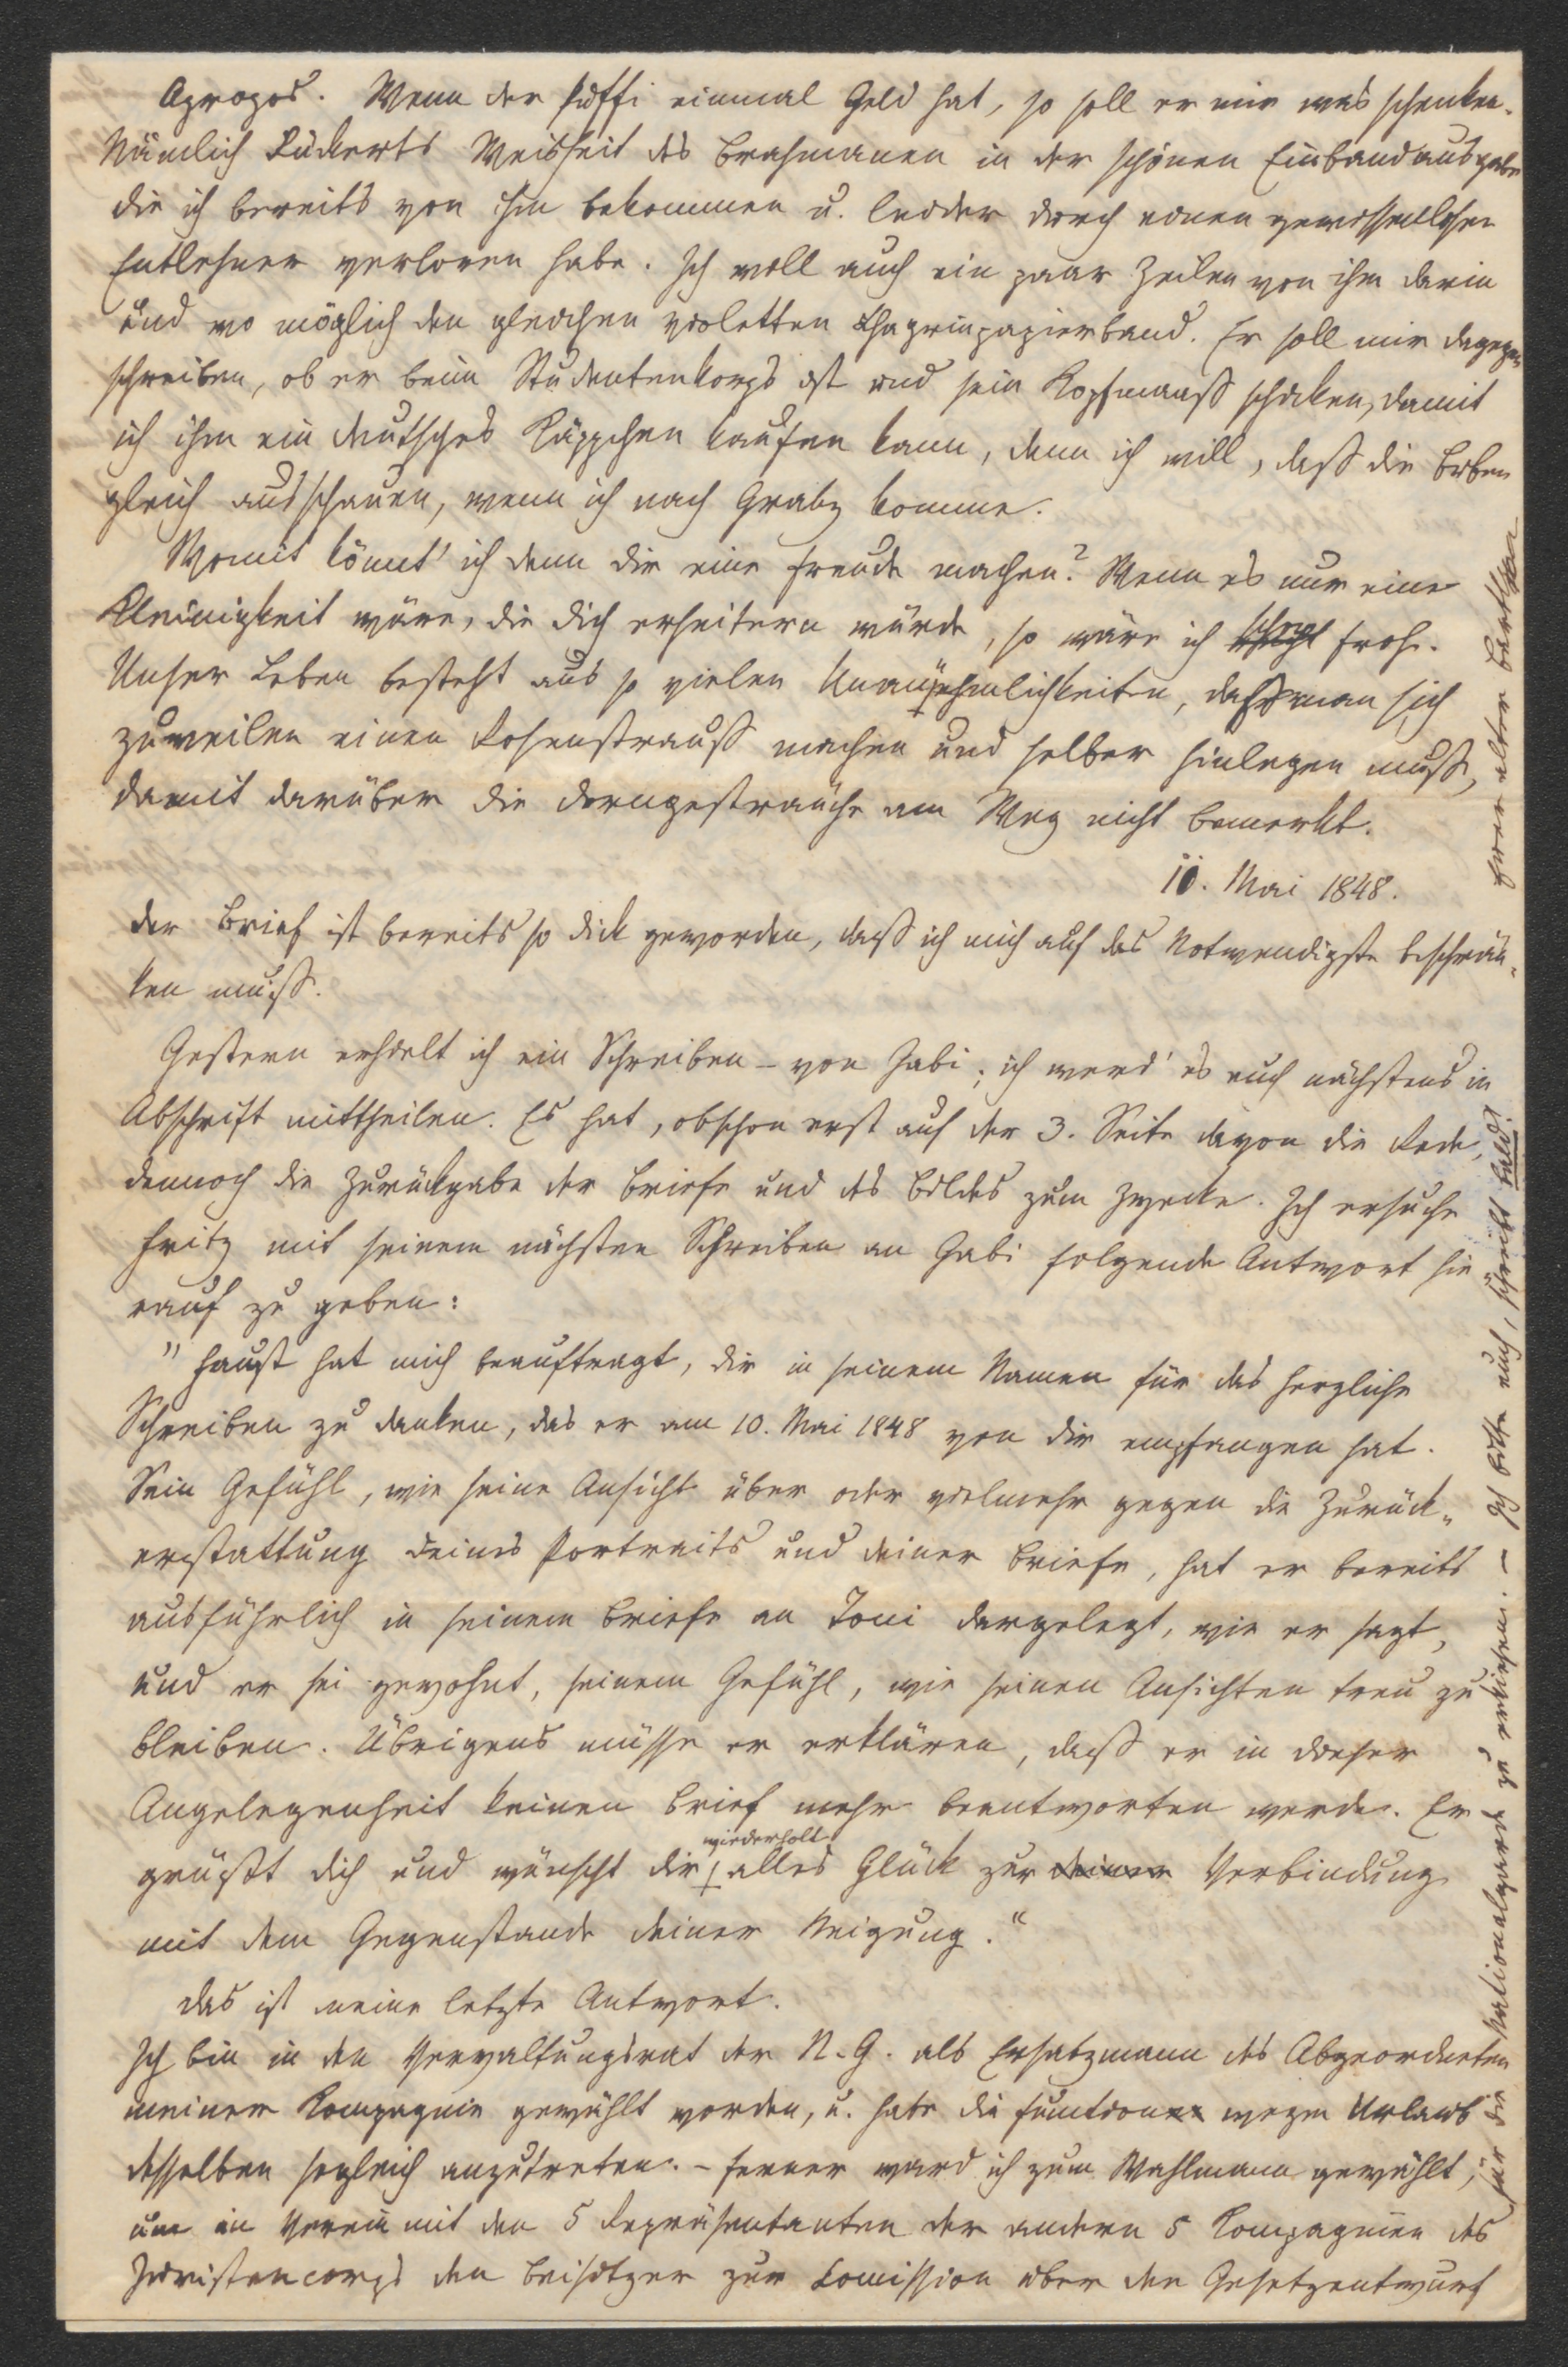 Apropos. Wenn der Puffi einmal Geld hat, so soll er mir was schenken.
Nämlich Rückerts Weisheit des Brahmanen in der schönen Einbandausgabe
die ich bereits von ihm bekommen u. leider durch einen gewissenlosen
Entlehner verloren habe. Ich will auch ein paar Zeilen von ihm darin
und wo möglich den gleichen violetten Chagrinpapierband. Er soll mir dagegen
schreiben, ob er beim Studentenkorps ist und sein Kopfmaaß schicken, damit
ich ihm ein deutsches Käppchen kaufen kann, denn ich will, daß die Buben
gleich ausschauen, wenn ich nach Gratz komme.
Womit könnt' ich denn dir eine Freude machen? Wenn es nur eine
Kleinigkeit wäre, die dich erheitern würde, so wäre ich froh.
Unser Leben besteht aus so vielen Unannehmlichkeiten, daß man sich
zuweilen einen Rosenstrauß machen und selber hinlegen muß,
damit darüber die Dorngesträuche am Weg nicht bemerkt.
11. Mai 1848.
Der Brief ist bereits so dick geworden, daß ich mich auf das Notwendigste beschrän-
ken muß.
Gestern erhielt ich ein Schreiben – von Gabi; ich werd' es euch nächstens in
Abschrift mittheilen. Es hat, obschon erst auf der 3. Seite davon die Rede,
dennoch die Zurückgabe der Briefe und des Bildes zum Zwecke. Ich ersuche
Fritz mit seinem nächsten Schreiben an Gabi folgende Antwort hie-
rauf zu geben:
"Faust hat mich beauftragt, dir in seinem Namen für das herzliche
Schreiben zu danken, das er am 10. Mai 1848 von dir empfangen hat.
Sein Gefühl, wie seine Ansicht über oder vielmehr gegen die Zurück-
erstattung deines Portraits und deiner Briefe, hat er bereits
ausführlich in seinem Briefe an Toni dargelegt, wie er sagt,
und er sei gewohnt, seinem Gefühl, wie seinen Ansichten treu zu
bleiben. Übrigens müsse er erklären, daß er in dieser
Angelegenheit keinen Brief mehr beantworten werde. Er
grüßt dich und wünscht dir wiederholt alles Glück zur deiner Verbindung
mit dem Gegenstande deiner Neigung."
Das ist meine letzte Antwort.
Ich bin in den Verwaltungsrat der N.G. als Ersatzmann des Abgeordneten
meiner Kompagnie gewählt worden, u. habe die Function wegen Urlaub
desselben sogleich anzutreten. – Ferner ward ich zum Wahlmann gewählt,
um im Verein mit den 5 Repräsentanten der andern 5 Kompagnien des
Juristencorps den Beisitzer zur Comission über den Gesetzentwurf
für die Nationalgarde zu erkiesen. – Ich bitte euch, schreibt bald!
Euer alter